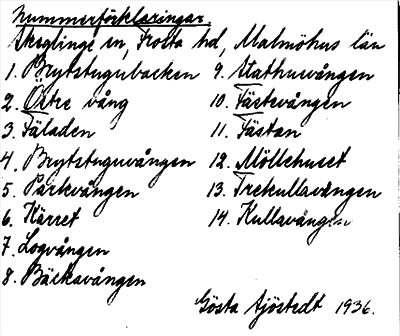 Nummerförklaringar.
Skeglinge sn, Frosta hd, Malmöhus län
1. Brytstugubacken 9. Stathusvången
2. Östre vång 10. Fästevången
3. Fäladen 11. Fästan
4. Brytstuguvången 12. Möllehuset
5. Parkvången 13. Trekullavången
6. Kärret 14. Kullavången
7. Logvången
8. Bäckavången
Gösta Sjöstedt 1936.